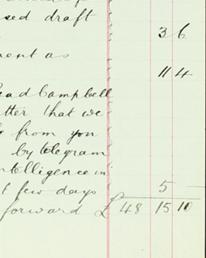 sed draft
3 6
ment as
11 4
ead Campbell
tter that we
from you
by telegram
ntelligence in
t few days 5 -
forward £48 15 10